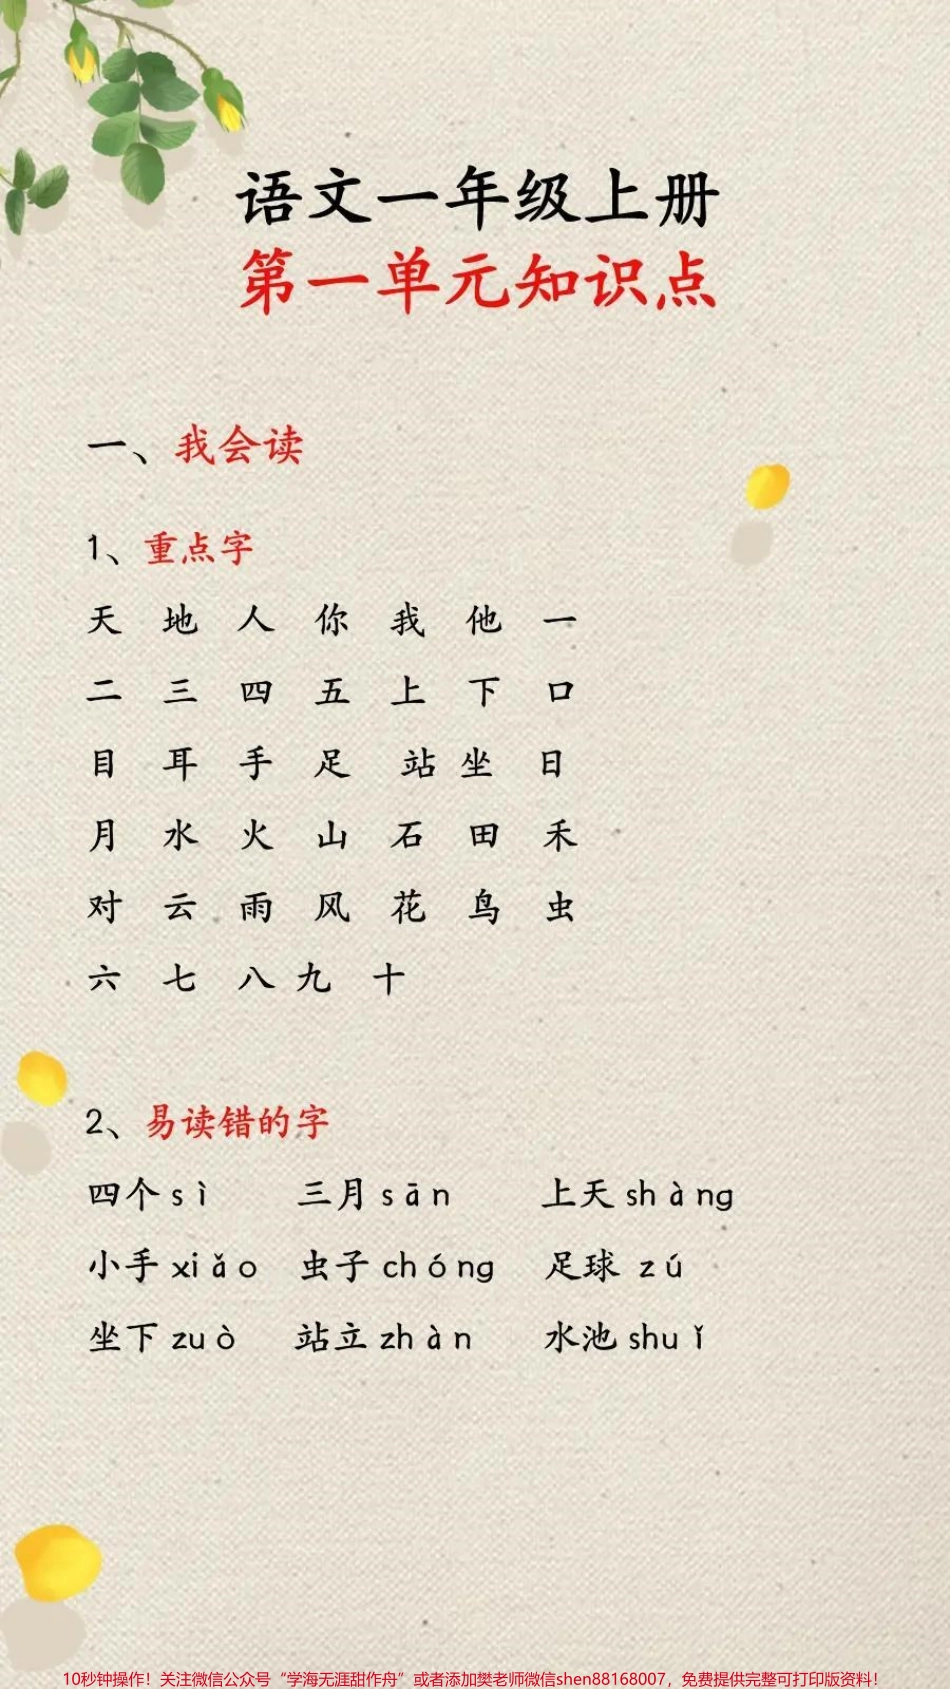 语文一年级上册
第一单元知识点
一、我会读
1、重点字
天 地 人 你 我 他 一
二 三 四 五 上 下 口
目 耳 手 足 站 坐 日
月 水 火 山 石 田 禾
对 云 雨 风 花 鸟 虫
六 七 八 九 十
2、易读错的字
四个 sì 三月 sān 上天 shàng
小手 xiǎo 虫子 chóng 足球 zú
坐下 zuò 站立 zhàn 水池 shuǐ
10秒钟操作！关注微信公众号“学海无涯甜作舟”或者添加樊老师微信shen88168007，免费提供完整可打印版资料！